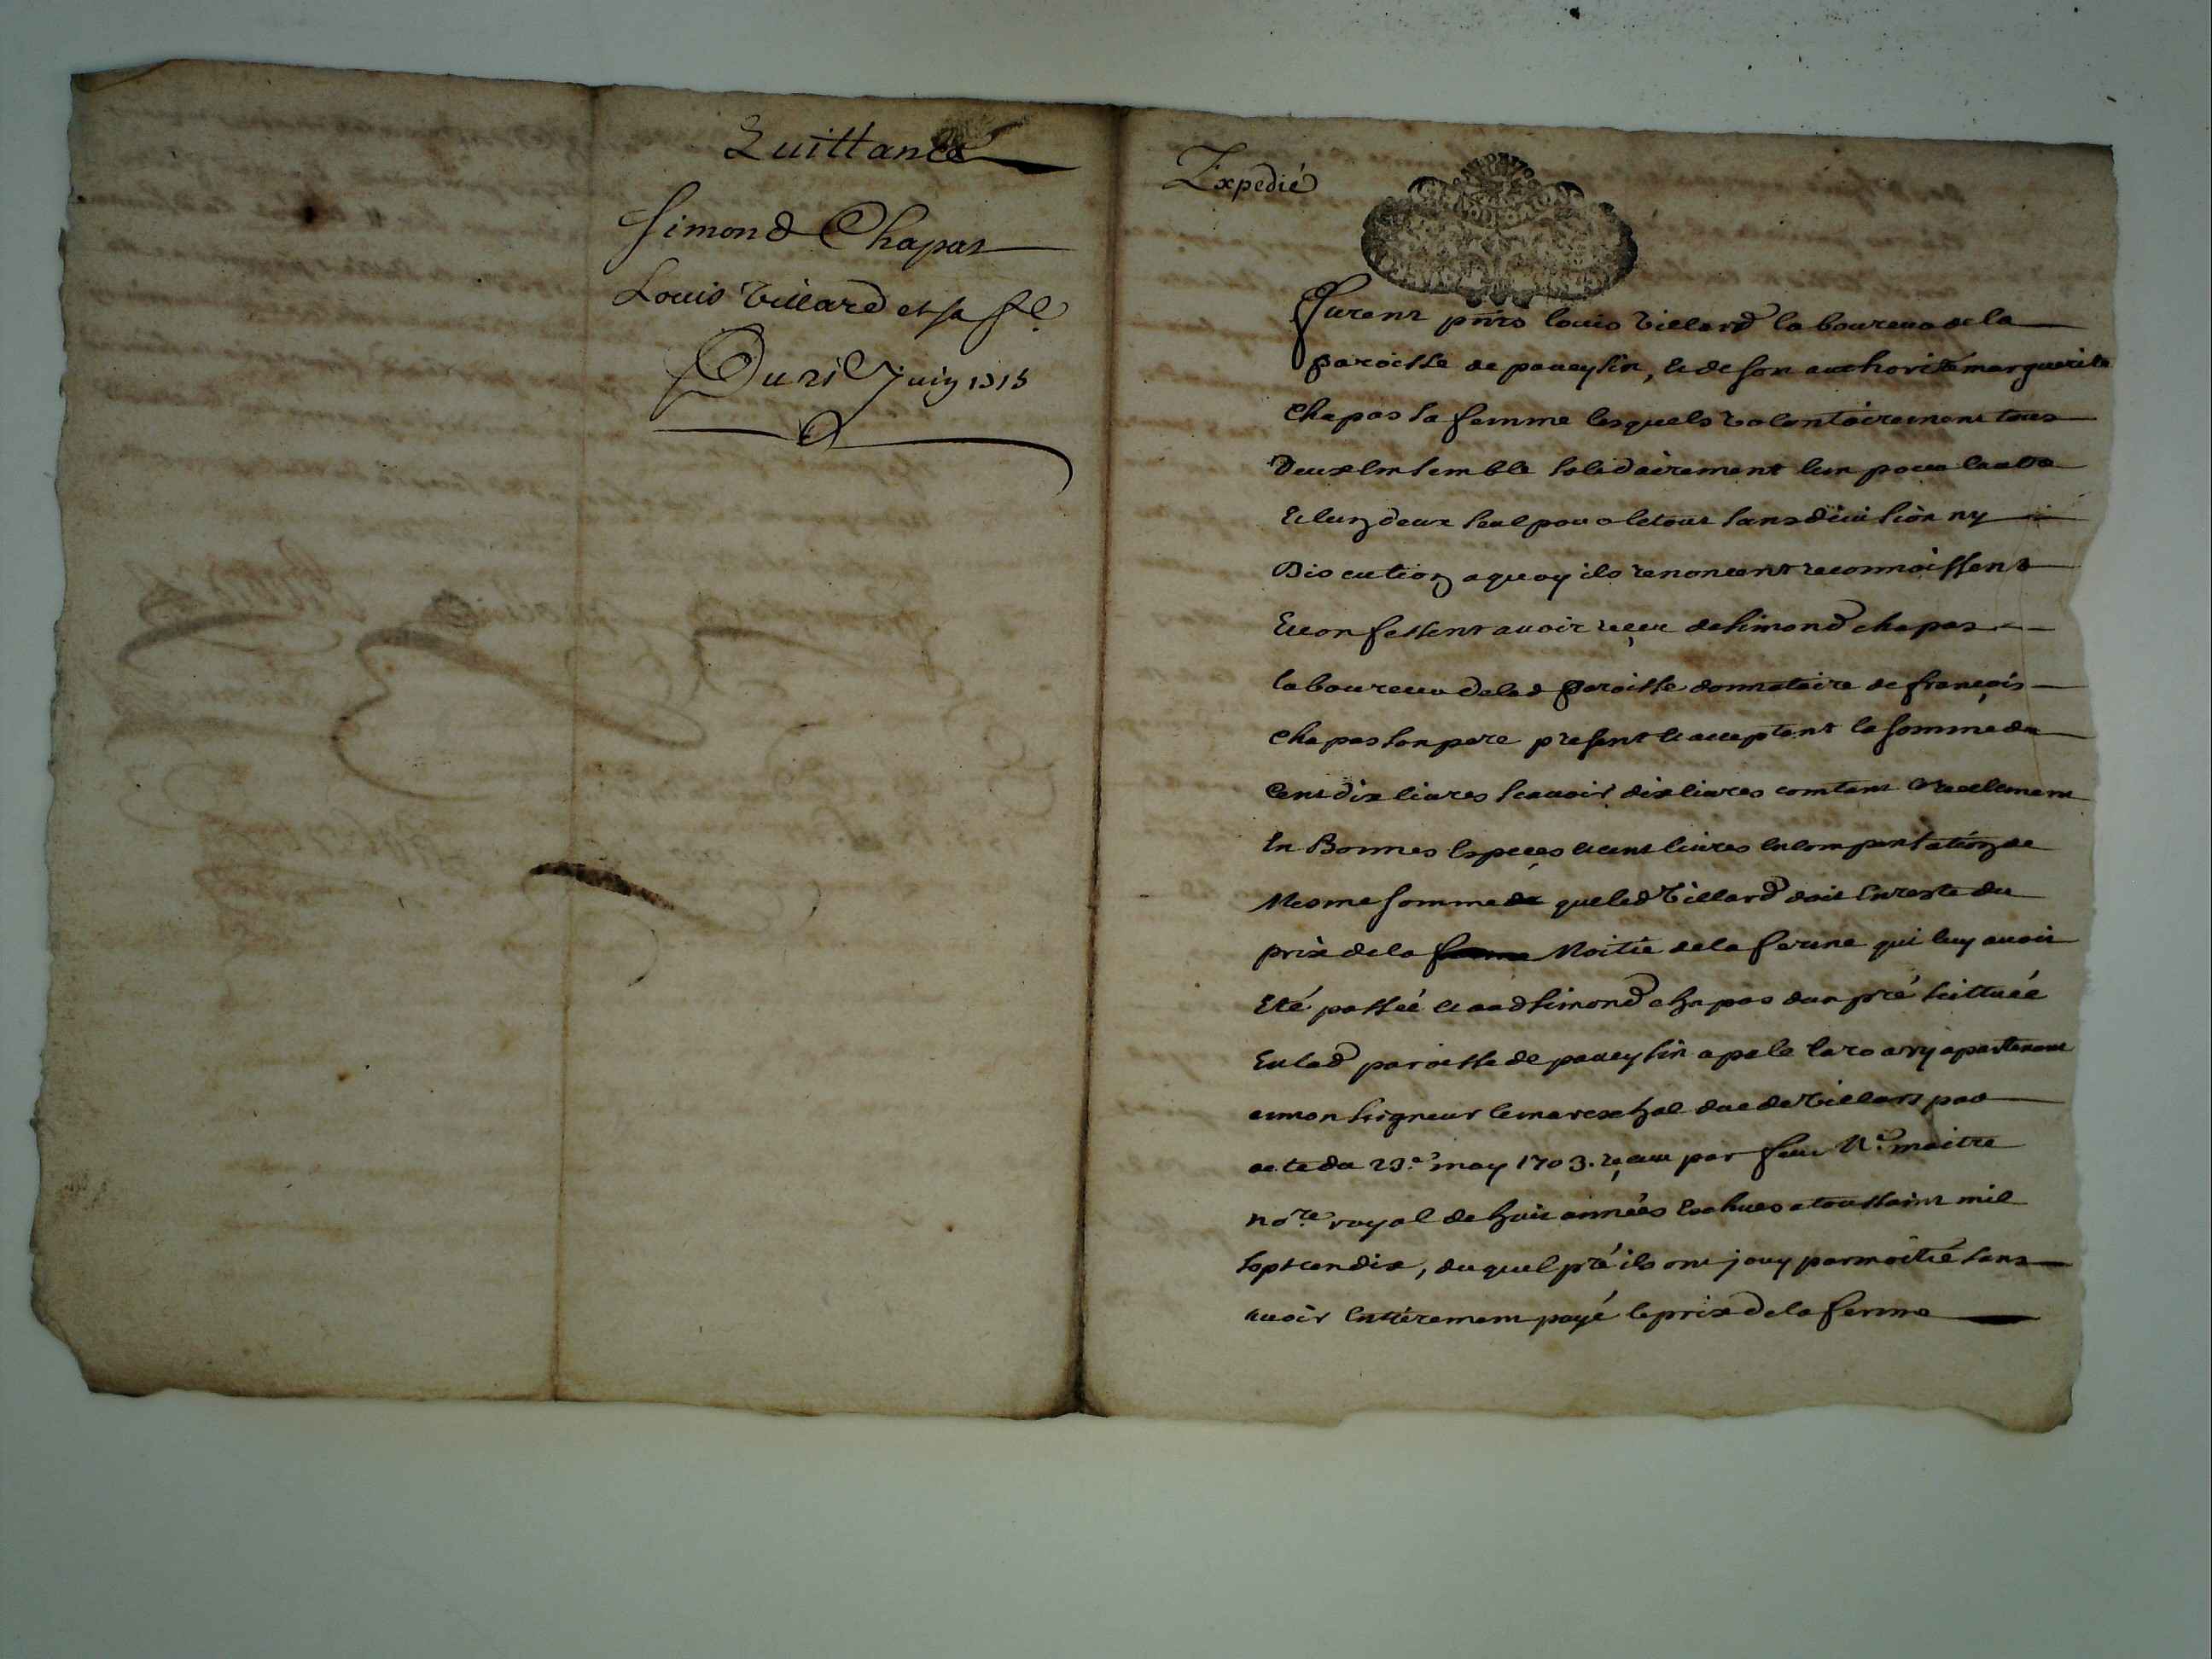 Quittance
Simond Chapas
Louis Villard et sa fe
Du 21 Juin 1715
Expedié
Furent pnts louis Villard laboureur de la
paroisse de paveysin, & de son authorité marguerite
Chapas sa femme lesquels volontairement tous
Deux ensemble solidairement lun pour lautre
& lun deux seul pour le tout sans divission ny
Discution a quoy ils renoncent reconnoissent
& confessent avoir reçeu de Simond chapas
laboureur de lad paroisse donnataire de françois
chapas son pere present & acceptant la somme de
Cent dix livres scavoir dix livres comtant & reelement
En Bonnes Especes & cent livres en compensation de
Mesme somme que led Villard doit En reste du
prix de la Moitie de la ferme qui luy avoit
Eté passée & aud Simond chapas dun pré scittuée
En lad paroisse de paveysin apelé apartenant
a monseigneur le mareschal duc de Villars par
acte du 23e may 1703. reçeu par feu Me maitre
nore royal de huit années Eschues a toussaint mil
sept cen dix, du quel pré ils ont jouy par moitié sans
avoir Entierement payé le prix de la ferme